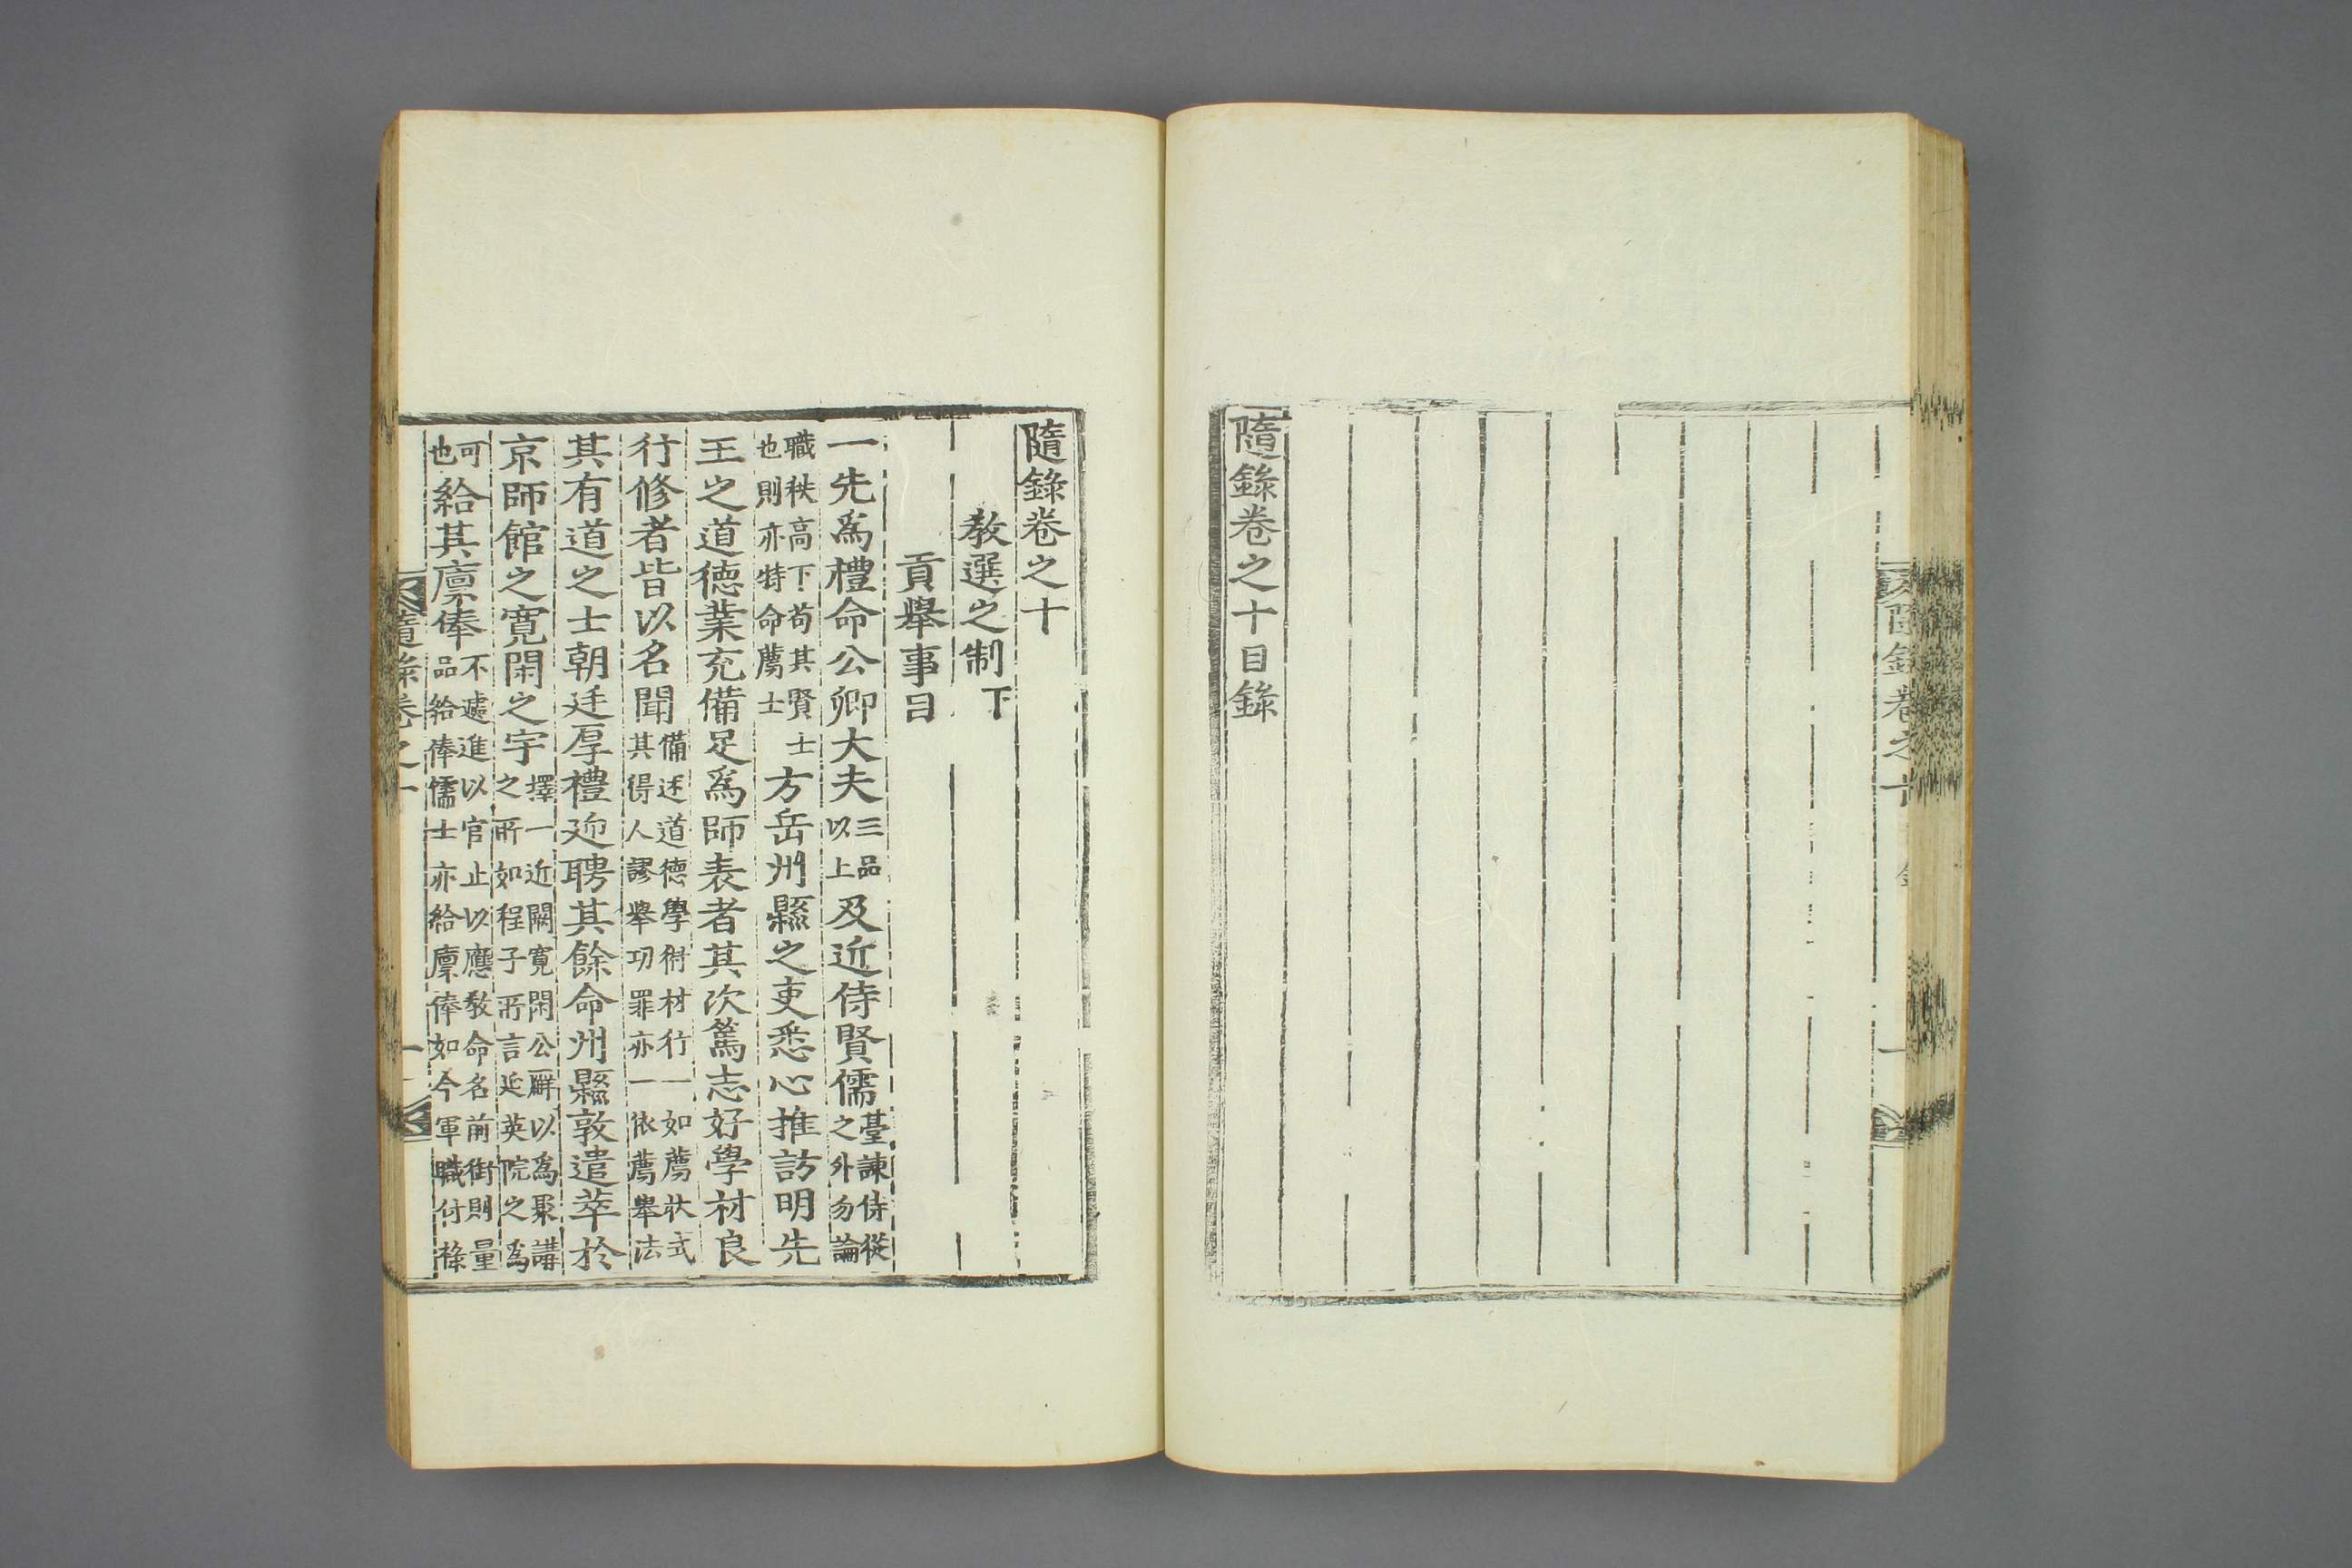 隨錄卷之十目錄
隨錄卷之十
隨錄卷之十
教選之制下
貢擧事目
一先爲禮命公卿大夫三品以上及近侍賢儒臺諫侍從之外勿論
職秩高下苟其賢士也則亦特命薦士方岳州縣之吏悉心推訪明先
王之道德業充備足爲師表者其次篤志好學材良
行修者皆以名聞備述道德學術材行一一如薦狀式其得人謬擧功罪亦一依薦擧法
其有道之士朝廷厚禮迎聘其餘命州縣敦遣萃於
京師館之寬閑之宇擇一近闕寬閑公廨以爲聚講之所如程子所言延英院之爲
可也給其廩俸不遽進以官止以應敎命名前銜則量品給俸儒士亦給廩俸如今軍職付祿
隨錄卷之十
一